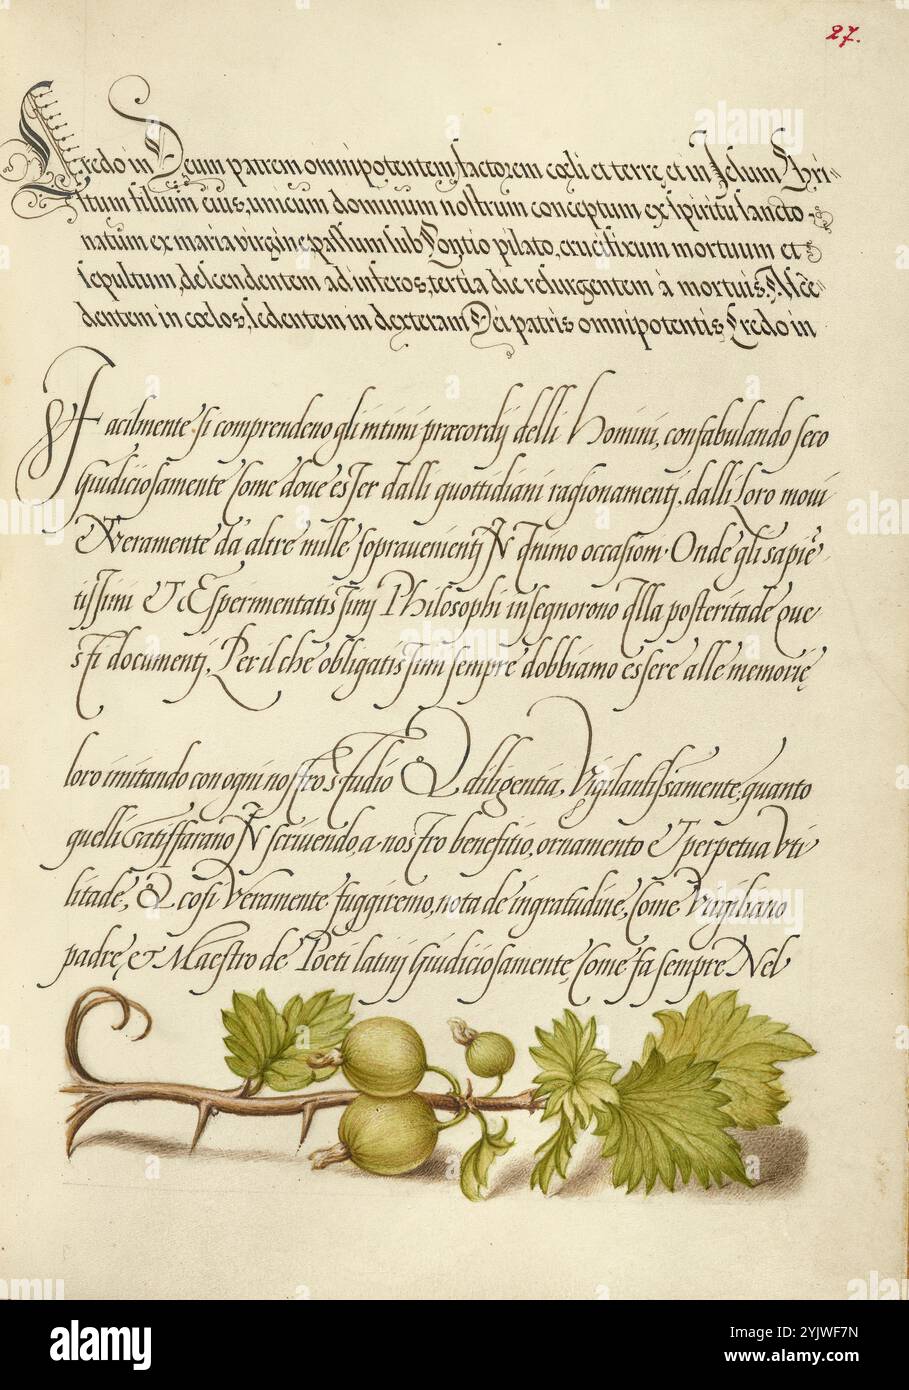 27.
Credo in Deum patrem omnipotentem, factorem cœli et terrę, et in Jesum Chri-
stum filium eius, unicum dominum nostrum conceptum ex spiritu sancto
natum ex maria virgine, passum sub Pontio pilato, crucifixum mortuum et
sepultum, descendentem ad inferos, tertia die resurgentem à mortuis. Ascē-
dentem in cœlos, sedentem in dexteram Dei patris omnipotentis Credo in
Facilmente si comprendeno gli intimi præcordij delli Homini, confabulando seco
Giudiciosamente Come doue esser dalli quottidiani ragionamenti, dalli Loro moui
Et Veramente da altre mille sopravenienti IN Animo occasioni. Onde gli sapiē-
tissimi ET Esperimentatissimi Philosophi insegnoreno Alla posteritade que
sti documenti, Per il che obligatissimi sempre dobbiamo essere alle memorię
loro imitando con ogni nostro Studio Et diligentia, Vigilantissamente, quanto
quelli satisffarano IN scriuendo, a nostro benefitio, ornamento ET perpetua Vti
litade, Et cosi Veramente fuggiremo, nota de ingratudine, Come Virgiliano
padrę, et Maestro de Poeti latini Giudiciosamente, Come fa sempre Nel
alamy
alamy
Image ID: 2YJWF7N
www.alamy.com